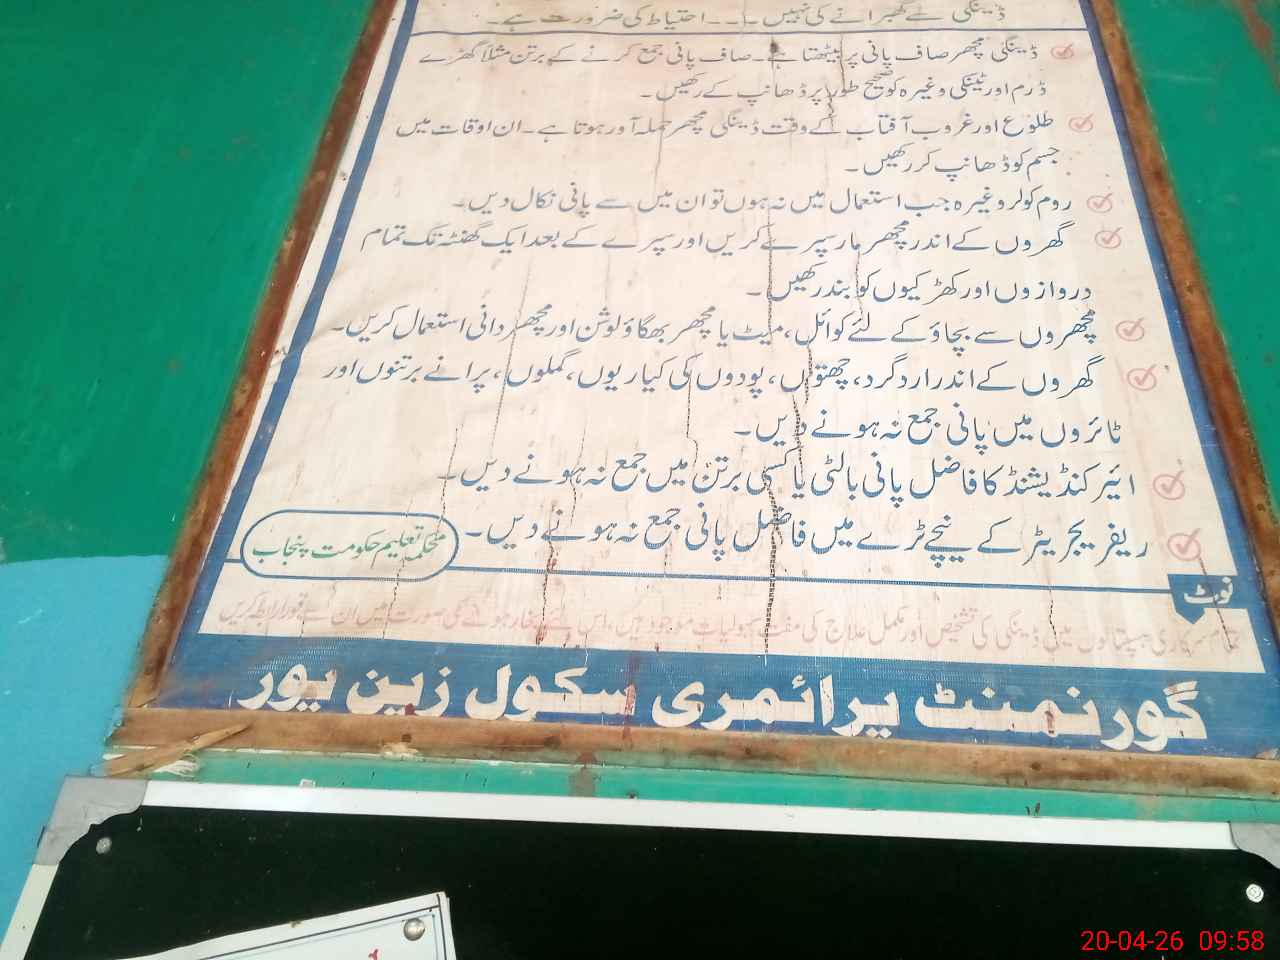 ڈینگی سے گھبرانے کی نہیں۔۔۔احتیاط کی ضرورت ہے۔
ڈینگی مچھر صاف پانی پر بیٹھتا ہے۔ صاف پانی جمع کرنے کے برتن مثلاً گھڑے
ڈرم اور ٹینکی وغیرہ کو صحیح طور پر ڈھانپ کے رکھیں۔
طلوع اور غروب آفتاب کے وقت ڈینگی مچھر حملہ آور ہوتا ہے۔ ان اوقات میں
جسم کو ڈھانپ کر رکھیں۔
روم کولر وغیرہ جب استعمال میں نہ ہوں تو ان میں سے پانی نکال دیں۔
گھروں کے اندر مچھر مار سپرے کریں اور سپرے کے بعد ایک گھنٹہ تک تمام
دروازوں اور کھڑکیوں کو بند رکھیں۔
مچھروں سے بچاؤ کے لئے کوائل، میٹ یا مچھر بھگاؤ لوشن اور مچھر دانی استعمال کریں۔
گھروں کے اندر اردگرد، چھتوں، پودوں کی کیاریوں، گملوں، پرانے برتنوں اور
ٹائروں میں پانی جمع نہ ہونے دیں۔
ائیر کنڈیشنڈ کا فاضل پانی بالٹی یا کسی برتن میں جمع نہ ہونے دیں۔
ریفریجریٹر کے نیچے ٹرے میں فاضل پانی جمع نہ ہونے دیں۔
محکمہ تعلیم حکومت پنجاب
نوٹ
تمام سرکاری ہسپتالوں میں ڈینگی کی تشخیص اور مکمل علاج کی مفت سہولیات موجود ہیں، اس لئے بخار ہونے کی صورت میں ان سے فوراً رابطہ کریں
گورنمنٹ پرائمری سکول زین پور
20-04-26 09:58